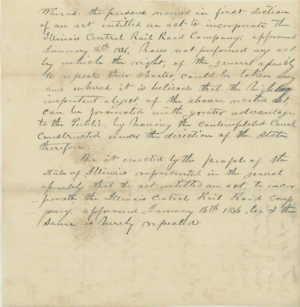 Whereas the persons named in first section
of an act entitled an act to incorporate the
Illinois Central Rail Road Company: approved
January 16th 1836, have not performed any act
by which the right of the general assembly
to repeal their charter could be taken away
and whereas it is believed that the highly
important object of the above recited act
can be promoted with greater advantage
to the Public, by having the contemplated Canal
constructed under the direction of the State
therefore.
Be it enacted by the people of the
state of Illinois represented in the general
assembly that the act entitled an act to incor
porate the Illinois Central Rail Road comp
any approved January 16th 1836 be & the
same is hereby repealed